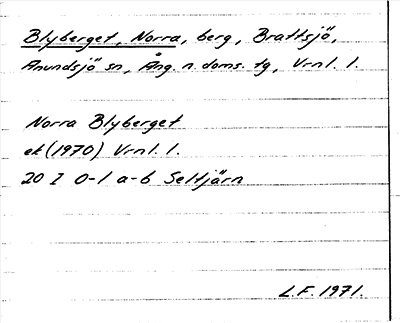 Blyberget, Norra, berg, Brattsjö,
Anundsjö sn, Ång. n. doms. tg, Vrnl. l.
Norra Blyberget
ek (1970) Vrnl. l.
20 I 0-1 a-b Seltjärn
L.F. 1971.